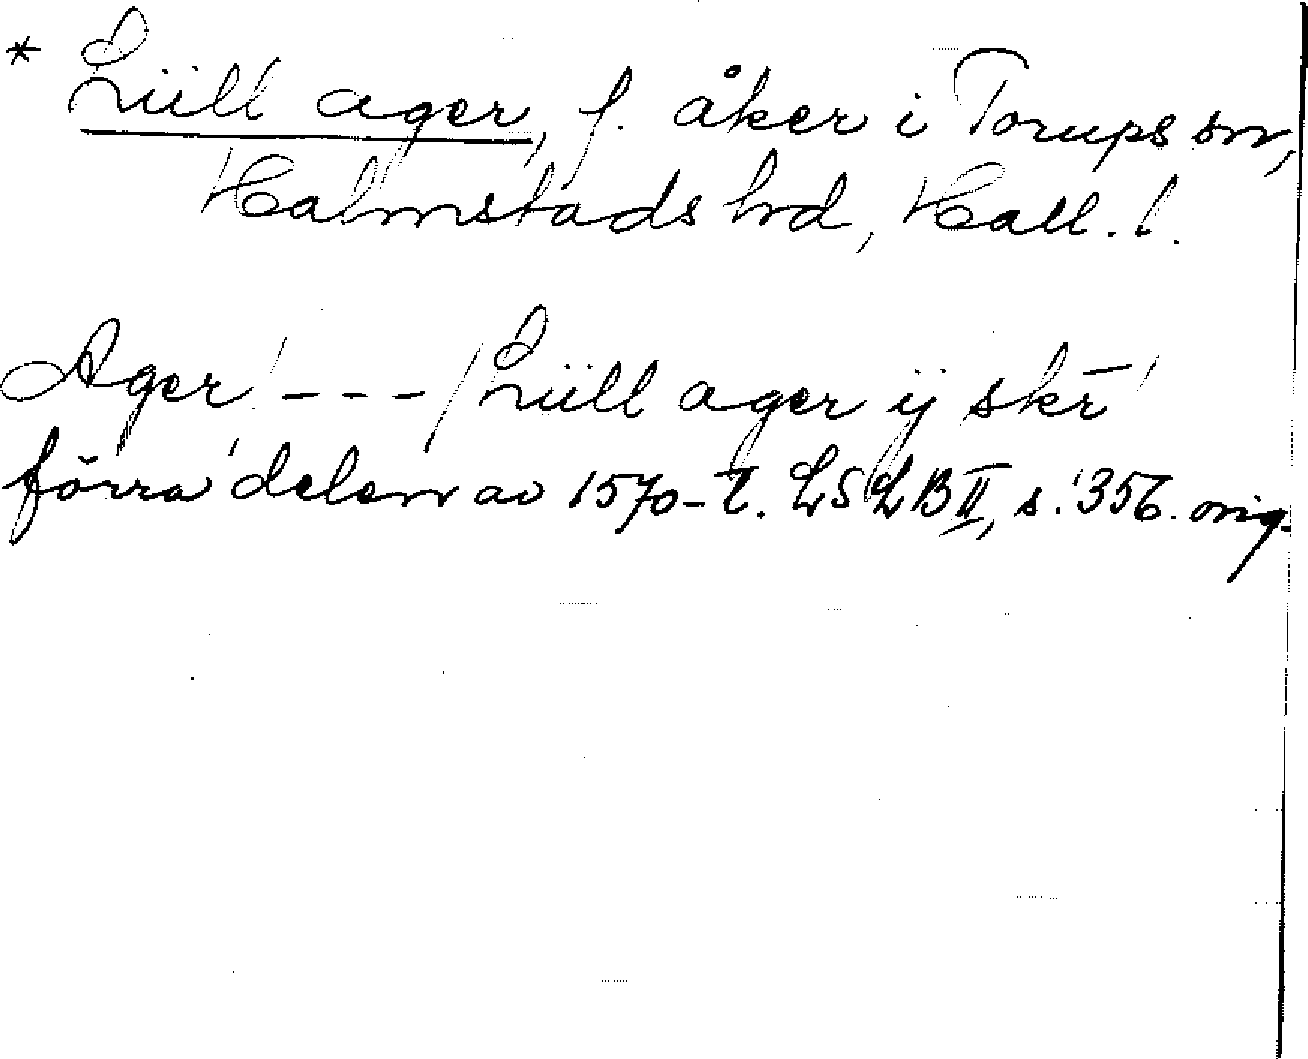 * Lüll ager, f. åker i Torups sn,
Halmstads hd, Hall. l.
Ager - - - / Lüll ager ij skr̄
förra delen av 1570-t. LSLB II, s. 356. orig.